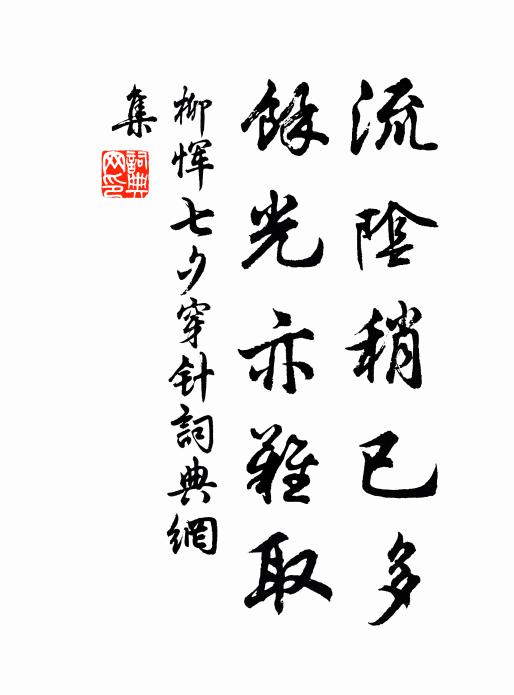 流陰稍已多
餘光亦難取
柳惲七夕穿針詞典網
集
詞典
网印